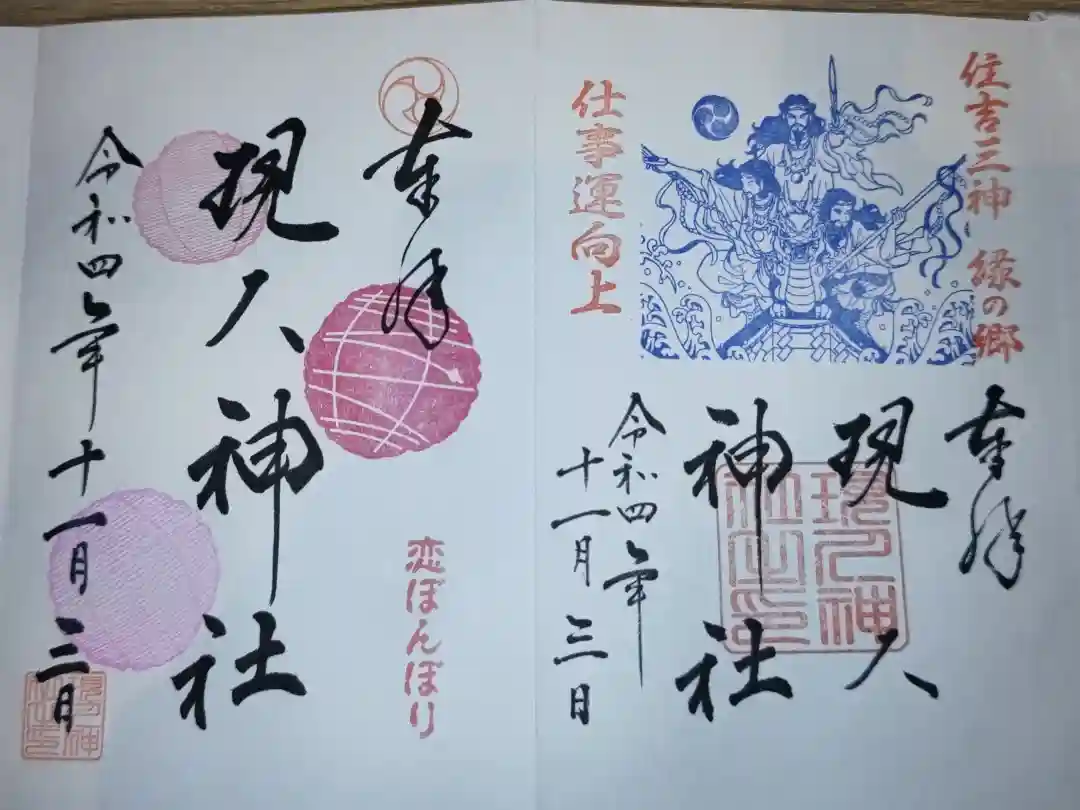 住吉三神 縁の郷
仕事運向上
奉拝
現人
神社
令和四年
十一月三日
現人神社之印
奉拝
恋ぼんぼり
現人神社
令和四年十一月三日
現人神社之印